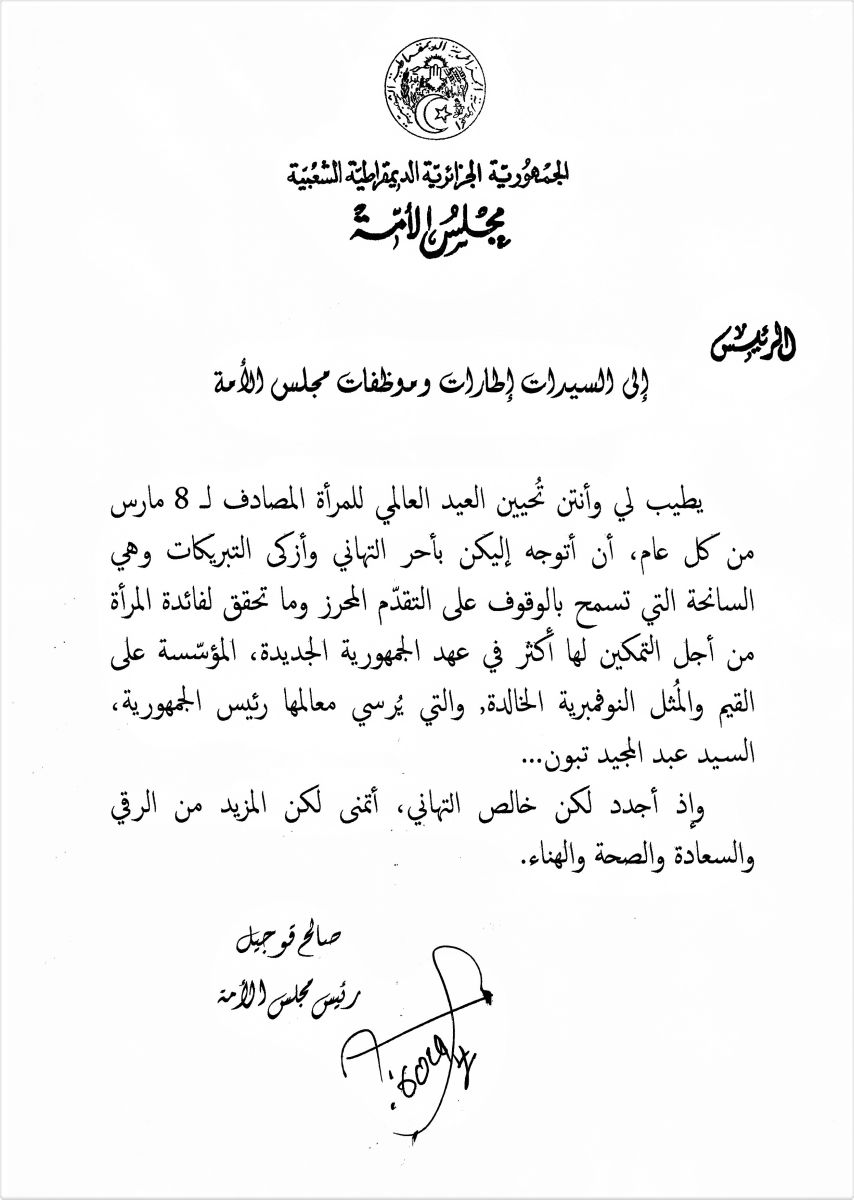 الجمهورية الجزائرية الديمقراطية الشعبية
الجمْهُوريّة الجزائريّة الديمقراطيّة الشّعْبيّة
مجْلسُ الأمّة
الرئيس
إلى السيدات إطارات وموظفات مجلس الأمة
يطيب لي وأنتن تُحيين العيد العالمي للمرأة المصادف لـ 8 مارس
من كل عام، أن أتوجه إليكن بأحر التهاني وأزكى التبريكات وهي
السانحة التي تسمح بالوقوف على التقدّم المحرز وما تحقق لفائدة المرأة
من أجل التمكين لها أكثر في عهد الجمهورية الجديدة، المؤسّسة على
القيم والمُثل النوفمبرية الخالدة, والتي يُرسي معالمها رئيس الجمهورية،
السيد عبد المجيد تبون...
وإذ أجدد لكن خالص التهاني، أتمنى لكن المزيد من الرقي
والسعادة والصحة والهناء.
صالح قوجيل
رئيس مجلس الأمة